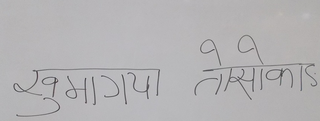 खुमागया तोसोकाड